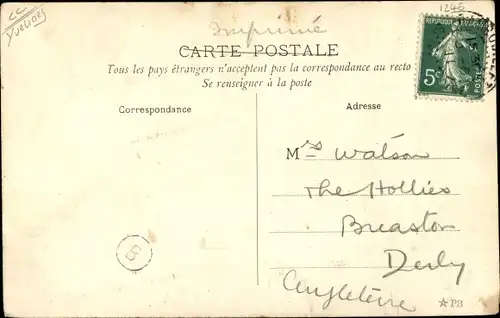 Yvelines
Imprimé
1246
CARTE POSTALE
Tous les pays étrangers n'acceptent pas la correspondance au recto
Se renseigner à la poste
REPUBLIQUE FRANÇAISE
5c
POSTES
Correspondance
Adresse
Mrs Watson
The Hollies
Breaston
Derby
Angleterre
B
☆ PB